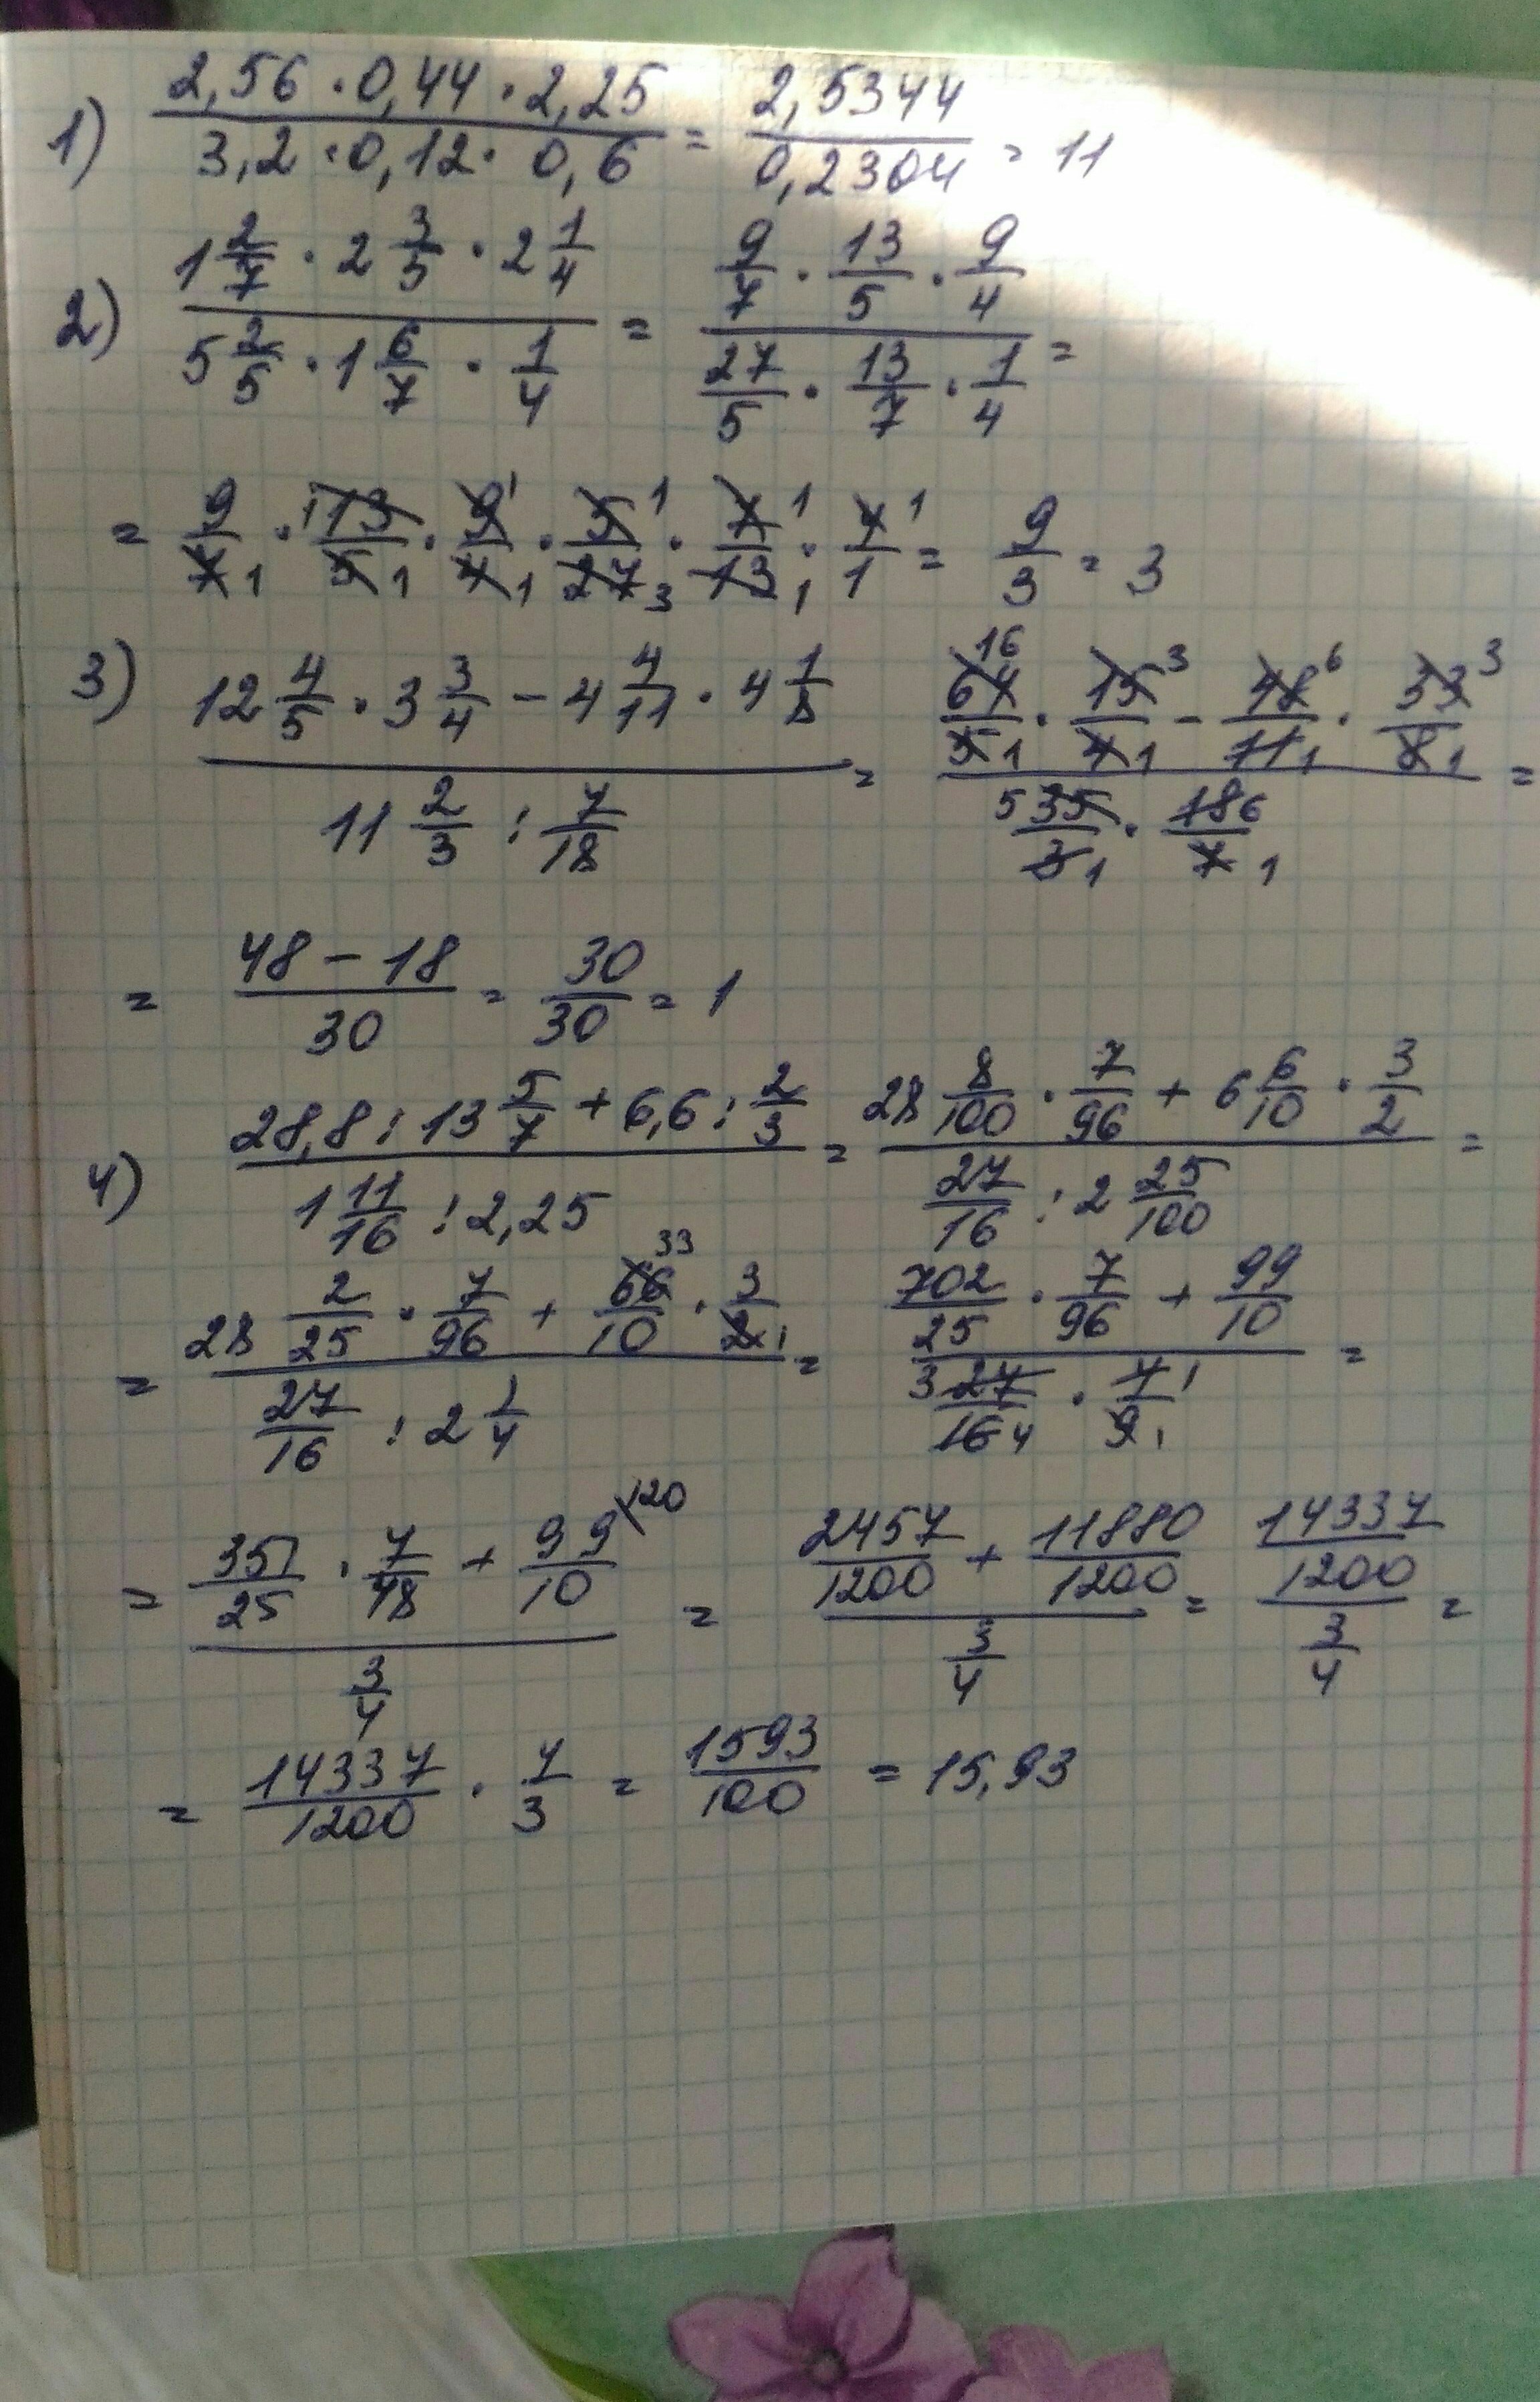 1) (2,56 · 0,44 · 2,25)/(3,2 · 0,12 · 0,6) = 2,5344/0,2304 = 11
2) (1 2/7 · 2 3/5 · 2 1/4)/(5 2/5 · 1 6/7 · 1/4) = (9/7 · 13/5 · 9/4)/(27/5 · 13/7 · 1/4) =
= 9/7 1 · 1 13/5 1 · 9 1/4 1 · 5 1/27 3 · 7 1/13 1 · 4 1/1 = 9/3 = 3
3) (12 4/5 · 3 3/4 - 4 4/11 · 4 1/8)/(11 2/3 : 7/18) = (16 64/5 1 · 15 3/4 1 - 48 6/11 1 · 33 3/8 1)/(5 35/3 1 · 18 6/7 1) =
= (48 - 18)/30 = 30/30 = 1
4) (28,8 : 13 5/7 + 6,6 : 2/3)/(1 11/16 : 2,25) = (28 8/100 · 7/96 + 6 6/10 · 3/2)/(27/16 : 2 25/100) =
= (28 2/25 · 7/96 + 66 33/10 · 3/2 1)/(27/16 : 2 1/4) = (702/25 · 7/96 + 99/10)/(3 27/16 4 · 4 1/9 1) =
= (351/25 · 7/48 + 99 \120/10)/(3/4) = (2457/1200 + 11880/1200)/(3/4) = (14337/1200)/(3/4) =
= 14337/1200 · 4/3 = 1593/100 = 15,93